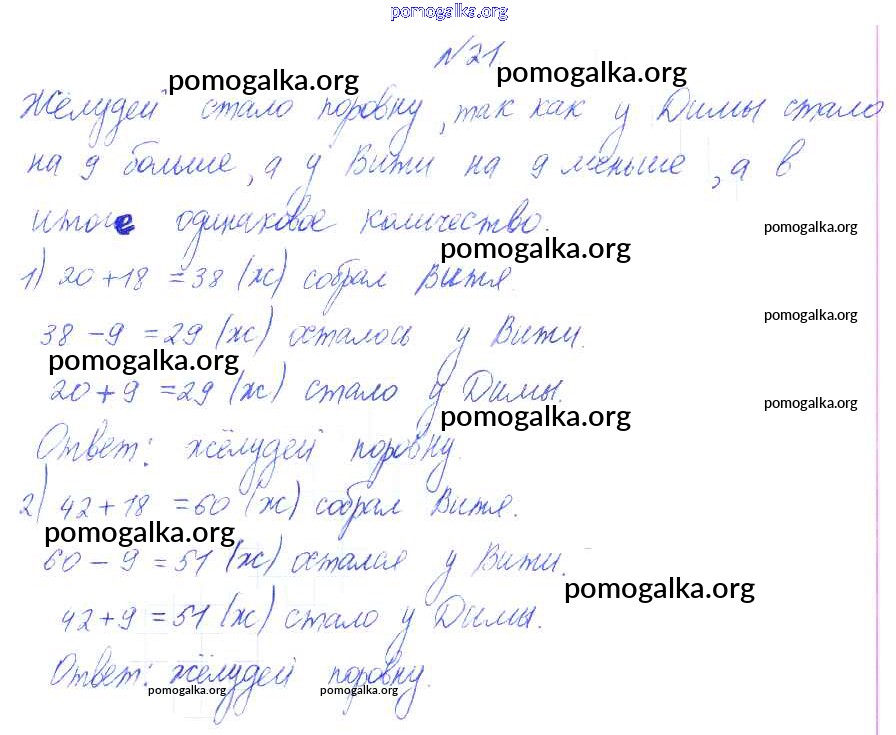 pomogalka.org
№21
pomogalka.org pomogalka.org
Жёлудей стало поровну, так как у Димы стало
на 9 больше, а у Вити на 9 меньше, а в
итоге одинаковое количество.
pomogalka.org pomogalka.org
1) 20+18 =38 (ж) собрал Витя
38 -9 =29 (ж) осталось у Вити.
pomogalka.org
pomogalka.org
20+9 =29 (ж) стало у Димы.
pomogalka.org pomogalka.org
Ответ: жёлудей поровну.
2) 42+18 =60 (ж) собрал Витя.
pomogalka.org
60-9=51 (ж) осталася у Вити.
pomogalka.org
42+9=51 (ж) стало у Димы.
Ответ: жёлудей поровну.
pomogalka.org pomogalka.org